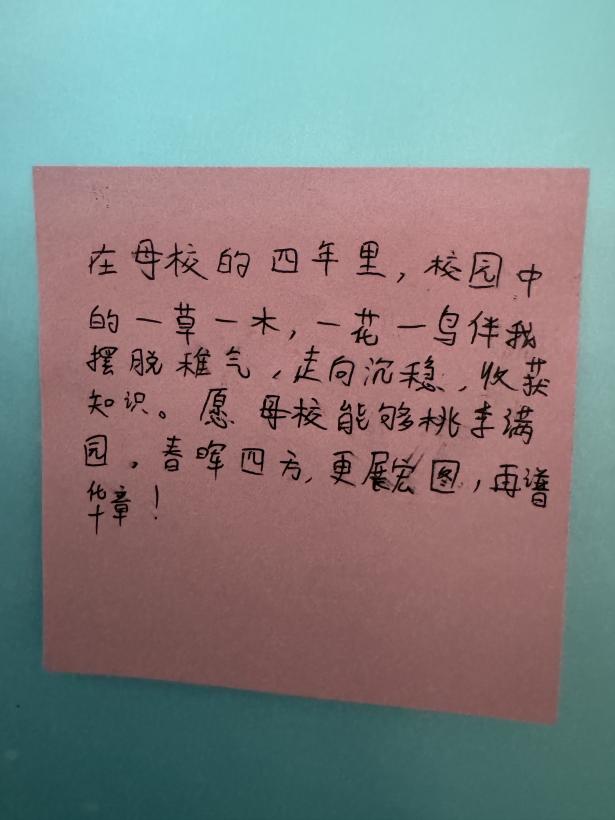 在母校的四年里，校园中
的一草一木，一花一鸟伴我
摆脱稚气，走向沉稳，收获
知识。愿母校能够桃李满
园，春晖四方，更展宏图，再谱
华章！